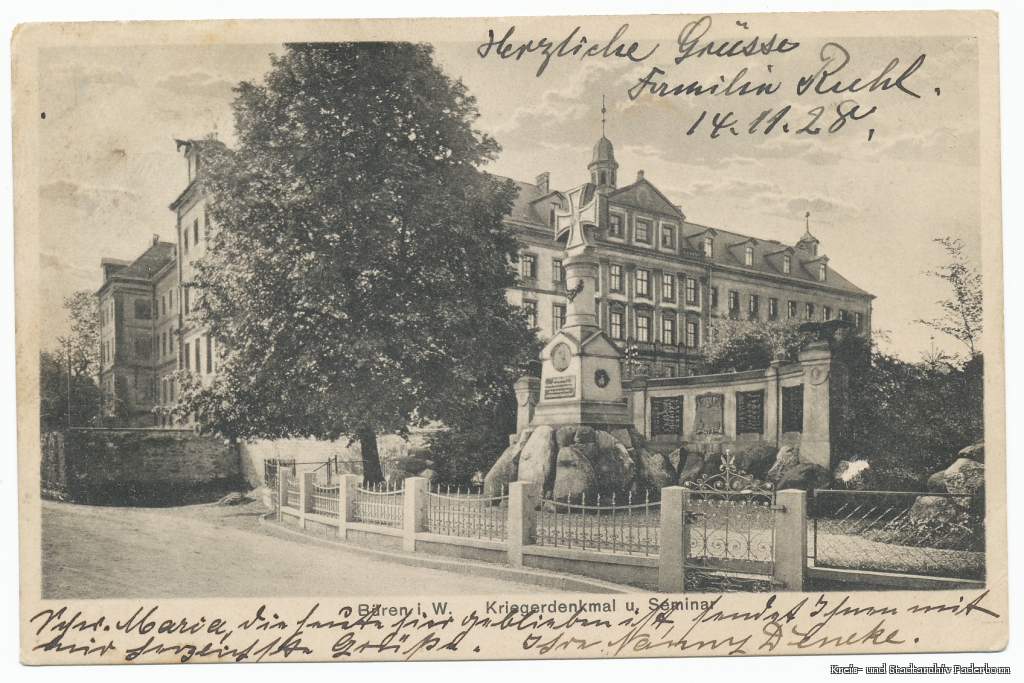 Herzliche Grüsse
Familie Ruhl.
14.11.28.
Büren i. W. Kriegerdenkmal u. Seminar
Schw. Maria, die heute hier geblieben ist, sendet Ihnen mit
mir herzlichste Grüße. Ihre Nanny D'Encke.
Kreis- und Stadtarchiv Paderborn